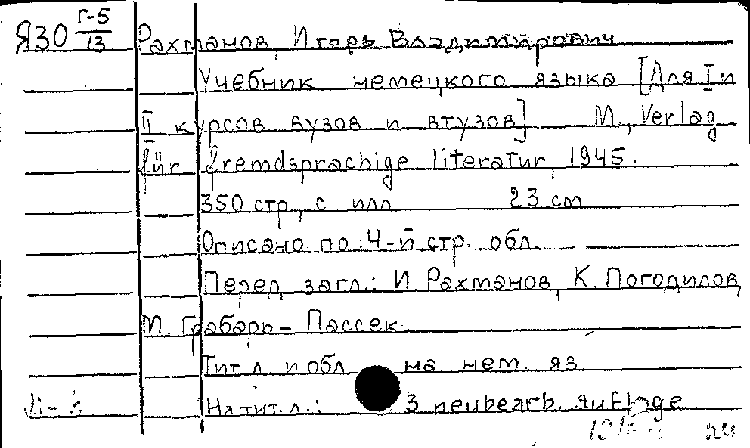 Я30 Г-5/13 Рахманов, Игорь Владимирович
Учебник немецкого языка [Для I и
II курсов вузов и втузов] М., Verlag
für fremdsprachige literatur, 1945.
350 стр., с илл 23 cm
Описано по 4-й стр. обл.
Перед загл.: И Рахманов, К. Погодилов,
М. Грабарь-Пассек.
Тит. л и обл на нем. яз
На тит. л.: 3 neubearb. Auflage